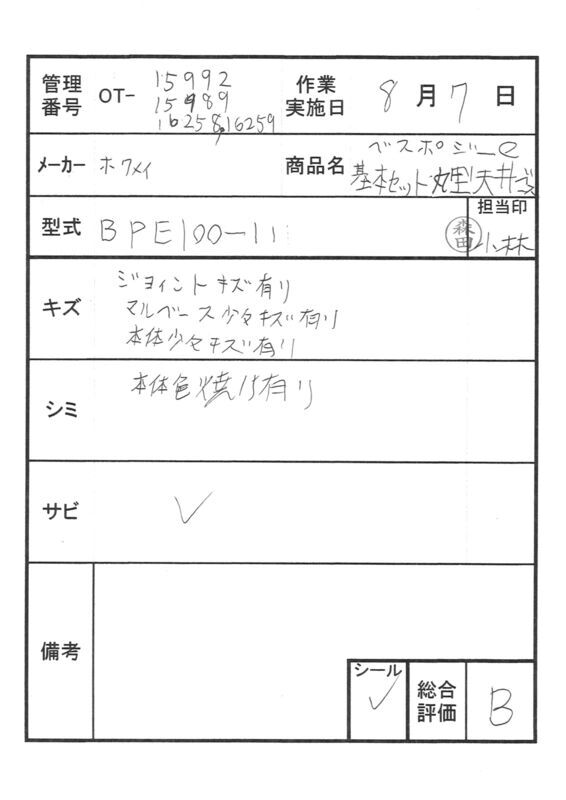 管理番号 OT- 15992
15989
16258,16259
作業実施日 8月7日
メーカー ホクメイ
商品名 ベスポジーe
基本セット 天井
型式 BPE100-11
担当印 森田 小林
キズ ジョイントキズ有り
マルベース少々キズ有り
本体少々キズ有り
シミ 本体色焼け有り
サビ ✓
備考
シール ✓
総合評価 B